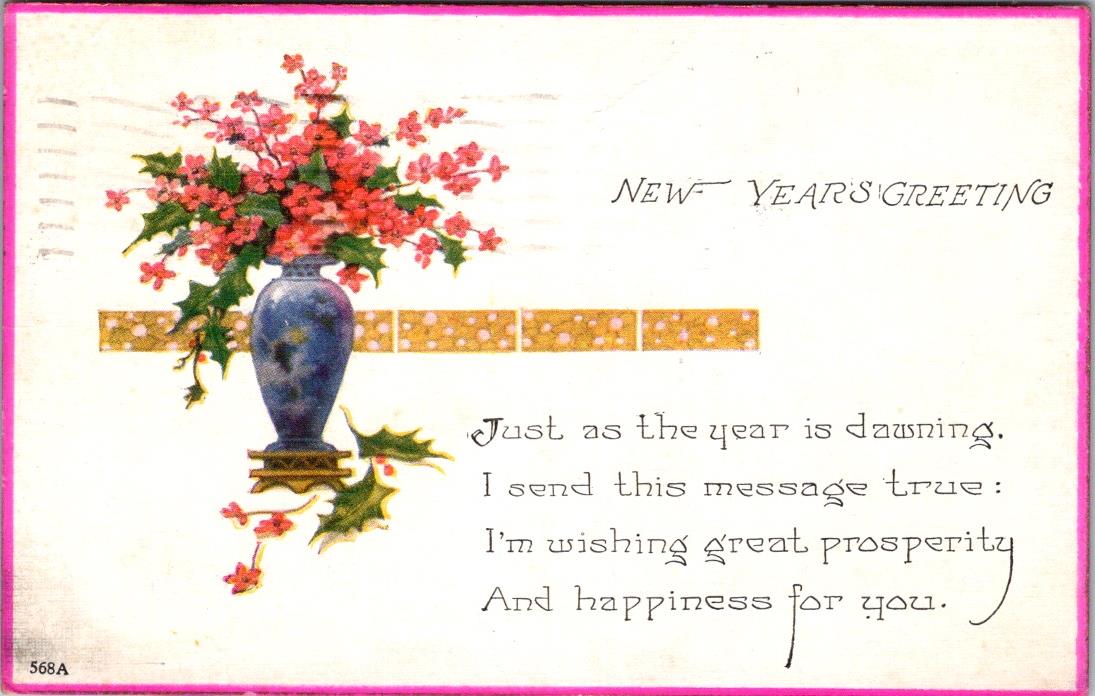 NEW YEAR'S GREETING
Just as the year is dawning.
I send this message true:
I'm wishing great prosperity
And happiness for you.
568A